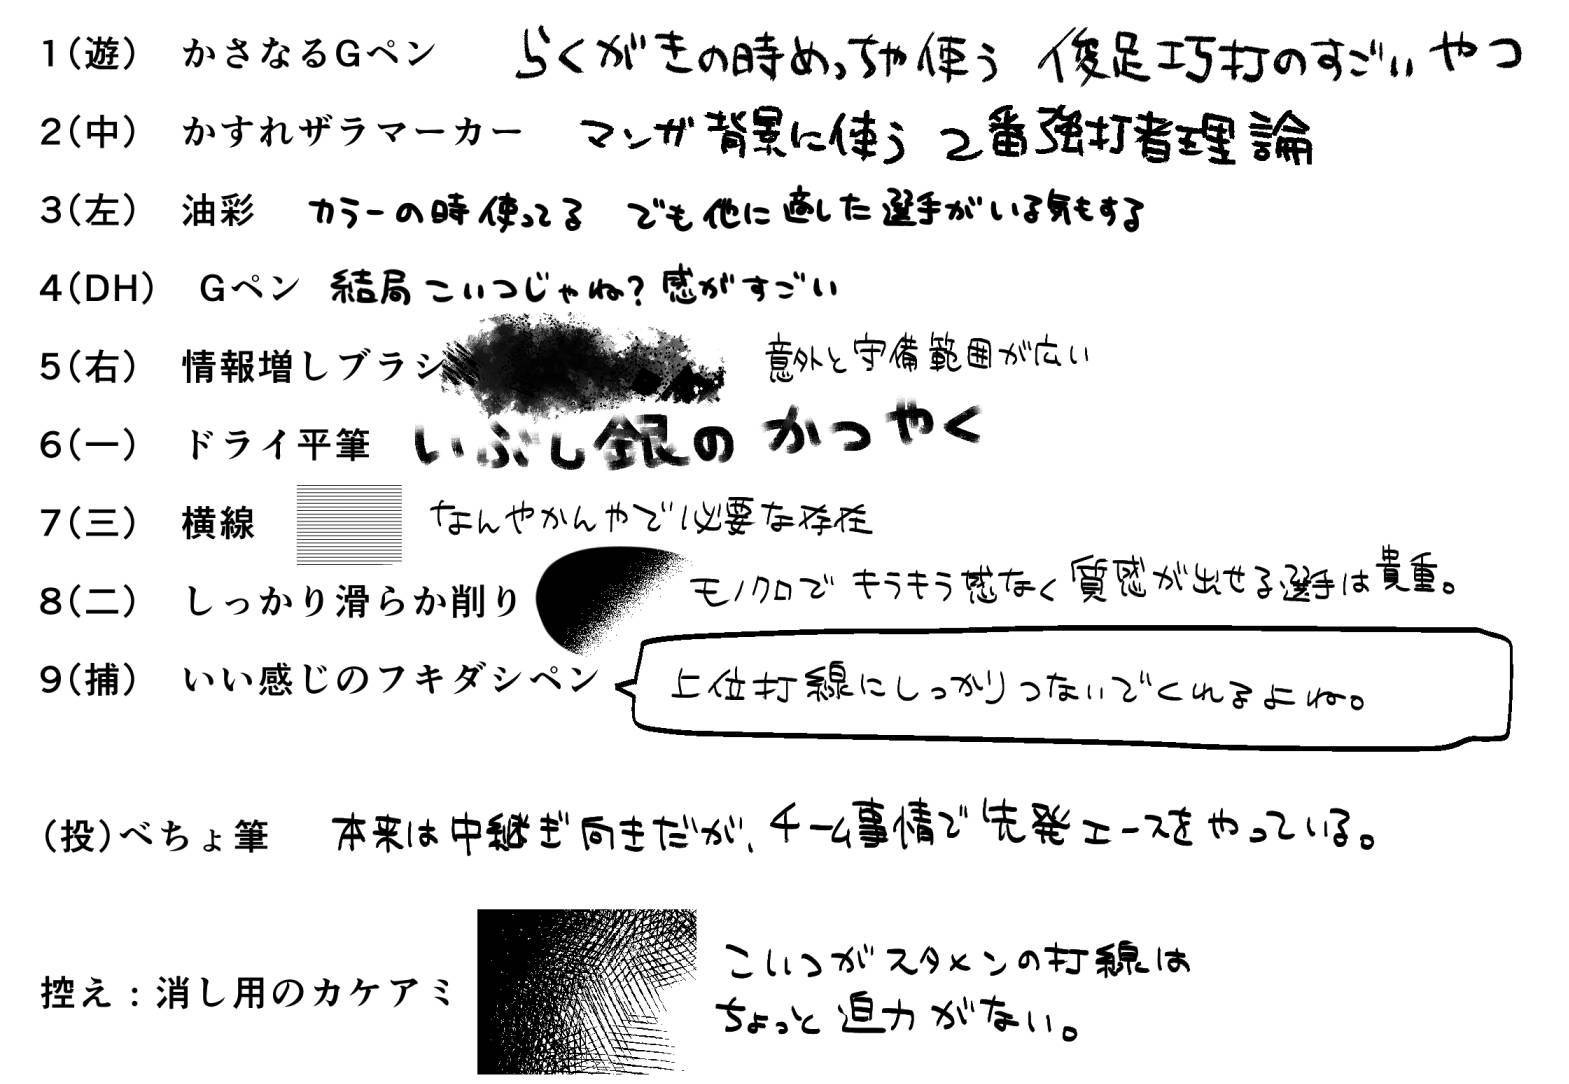 1(遊) かさなるGペン らくがきの時めっちゃ使う 俊足巧打のすごいやつ
2(中) かすれザラマーカー マンガ背景に使う 2番強打者理論
3(左) 油彩 カラーの時使ってる でも他に適した選手がいる気もする
4(DH) Gペン 結局こいつじゃね?感がすごい
5(右) 情報増しブラシ 意外と守備範囲が広い
6(一) ドライ平筆 いぶし銀のかつやく
7(三) 横線 なんやかんやで必要な存在
8(二) しっかり滑らか削り モノクロでキラキラ感なく質感が出せる選手は貴重。
9(捕) いい感じのフキダシペン 上位打線にしっかりつないでくれるよね。
(投)べちょ筆 本来は中継ぎ向きだが、チーム事情で先発エースをやっている。
控え:消し用のカケアミ こいつがスタメンの打線は
ちょっと迫力がない。